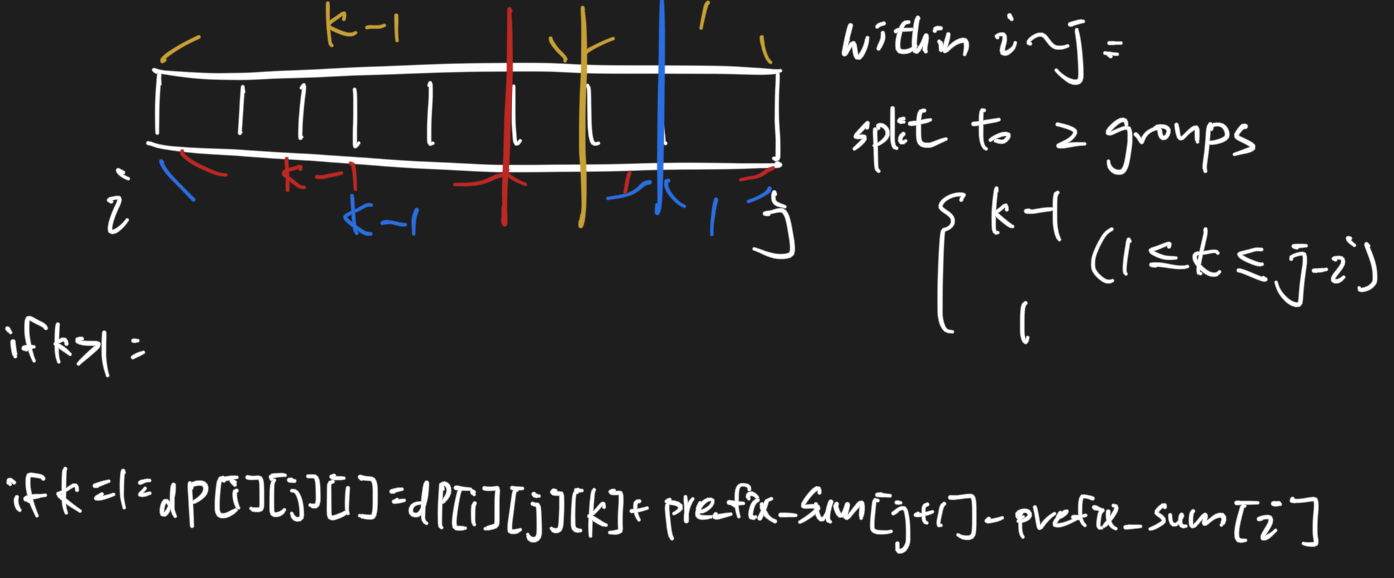 k-1
1
k-1
1
k-1
1
i
j
within i~j=
split to 2 groups
{ k-1
(1≤k≤j-i)
1
if k>1=
if k=1=dp[i][j][1]=dp[i][j][k]+prefix_sum[j+1]-prefix_sum[i]